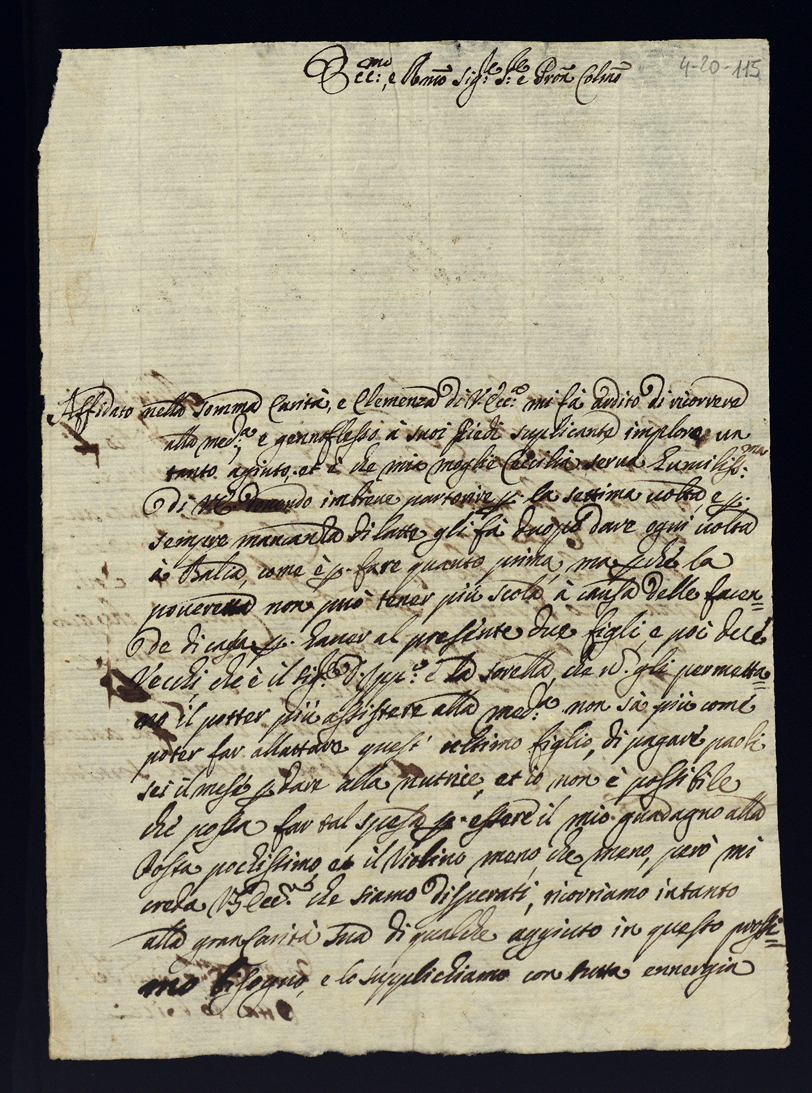 4-20-115
Ecc:mo, e Rmo Sig:re Sr:e e Pron Colmo
Affidato nella somma Carità, e Clemenza di V. Ecc:a mi fà ardito di ricorrere
alla med:a, e genoflesso à suoi piedi suplicante imploro un
tanto agiuto, et è che mia moglie Cecilia serva humiliss:ma
di dovendo in breve partorire p. la settima volta, e p.
sempre mancanza di latte gli fà duopo dare ogni volta
à Balia, come è p. fare quanto prima, ma p.chè la
poveretta non può tener più scola à causa delle facen=
de di casa p. haver al presente due figli, e poi delli
Vecchi che è il Sig:r D. Spp:e e la sorella, che n. gli permetta=
no il potter più assistere alla med:a non sà più come
poter far allattare quest' ultimo figlio, di pagare paoli
sei il mese p. dare alla nutrice, et io non è possibile
che possa far tal spesa p. essere il mio guadagno alla
Posta pochissimo, et il Violino meno, che meno, però mi
creda V. Ecc:za che siamo disperati, ricorriamo intanto
alla gran Carità Sua di qualche aggiuto in questo prossi=
mo bisogno, e lo supplichiamo con tutta ennergia